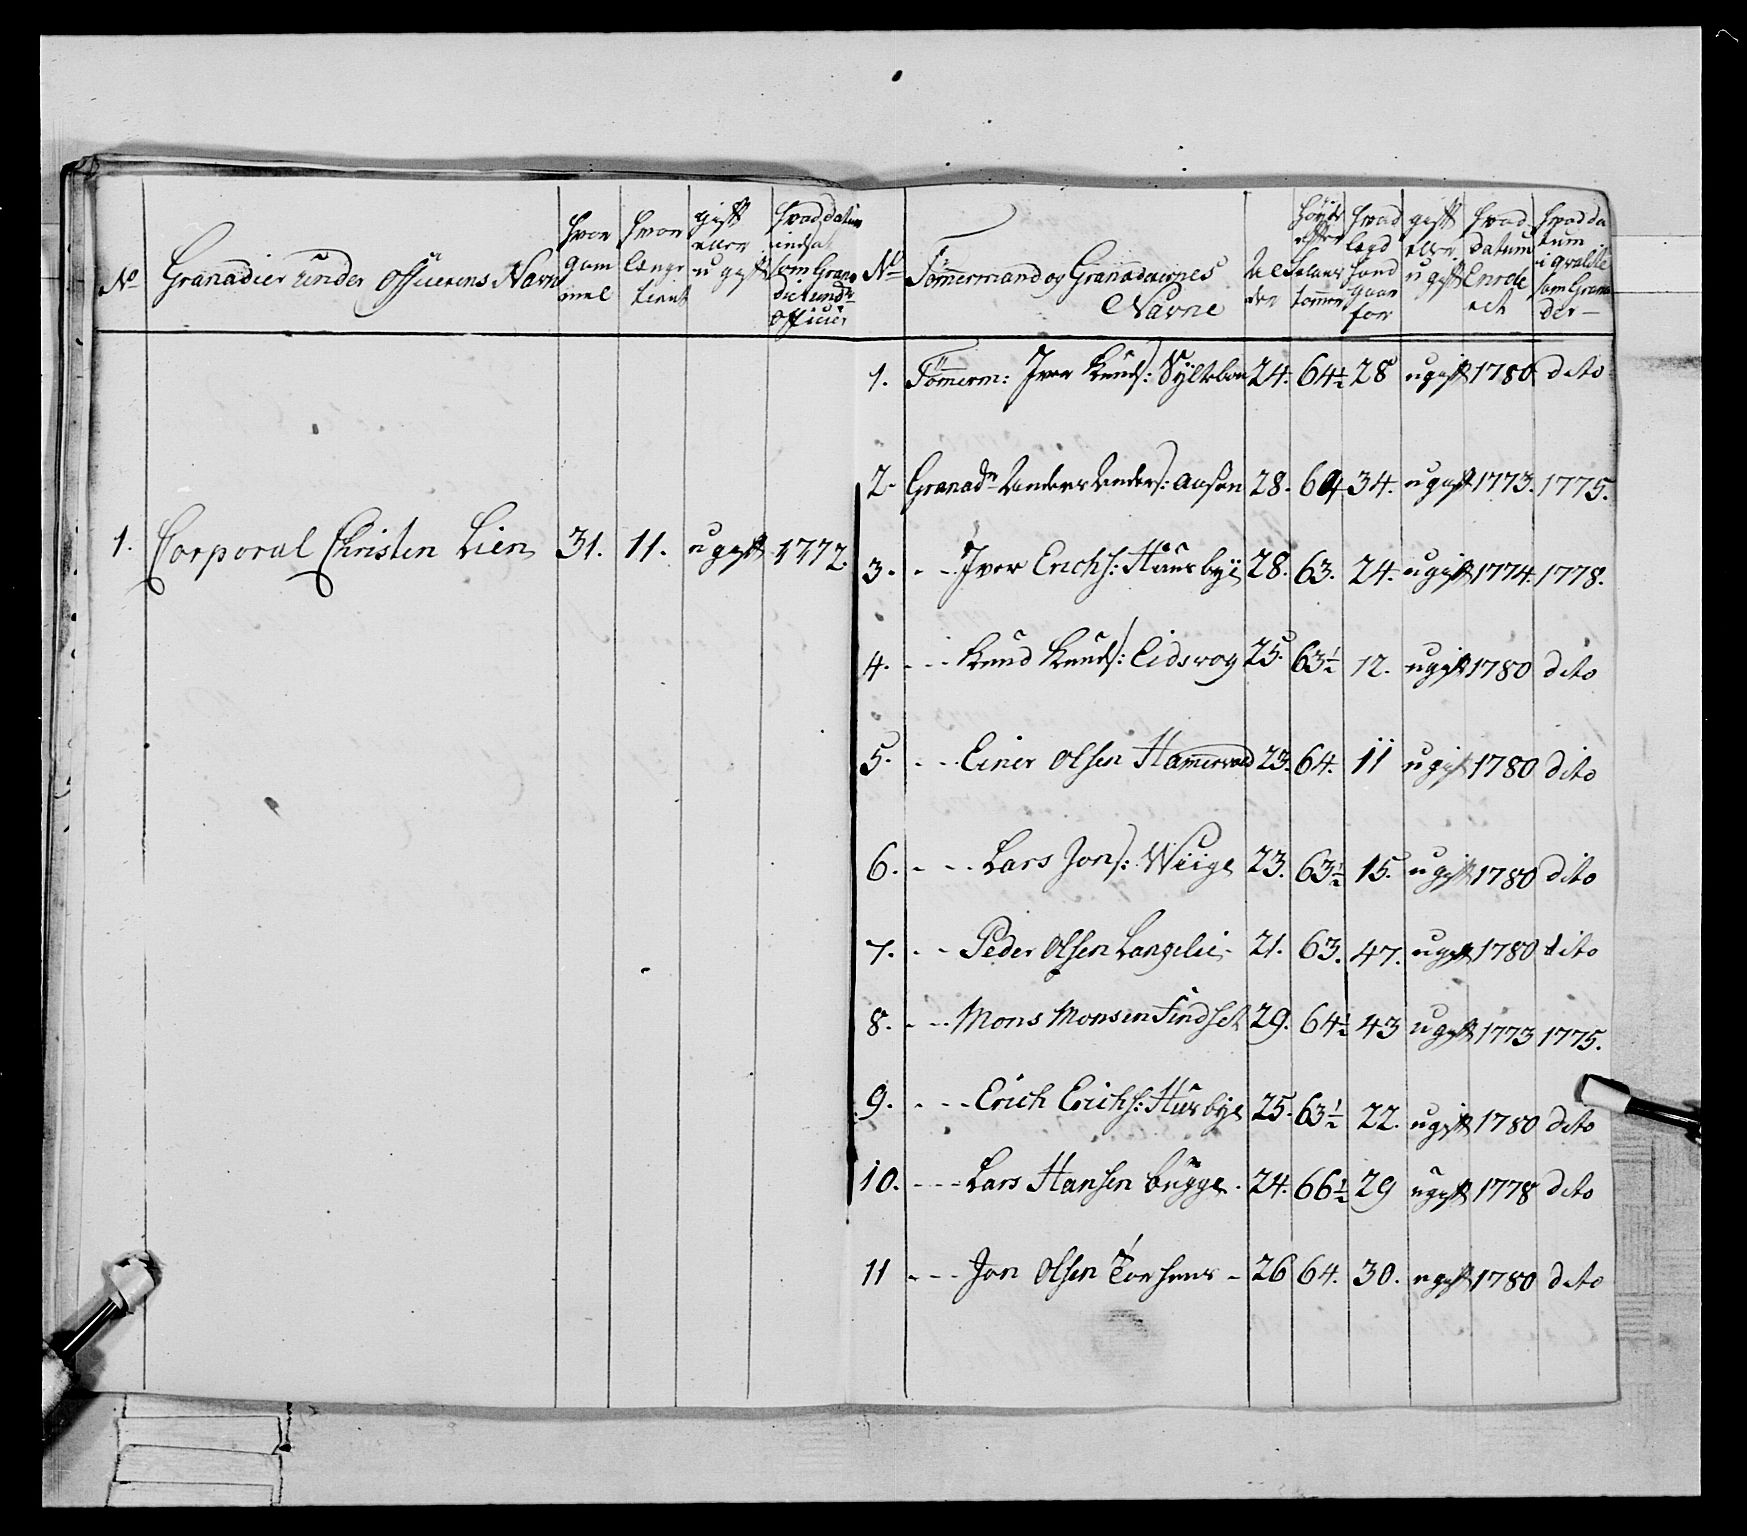 No Granadier under Officerens Navn hvor gammel hvor længe tient gift eller ugift hvad datum indsat som Granadier under Officier
1. Corporal Christen Lien 31. 11. ugift 1772.
No Tömmermand og Granadarnes Navne Alder höyde efter tommer hvad legd hand gaar for gift eller ugift hvad datum Enrole hvad datum i qvalite som Granader
1. Tömmerm: Iver Knuds: Syltebou 24. 64½ 28 ugift 1780 dito
2. Granadr Anders Anders: Aasen 28. 64 34. ugift 1773. 1775.
3. - - Iver Erichs: Huusbye 28. 63. 24. ugift 1774. 1778.
4. - - - Knud Knuds: Eidsvog 25. 63½ 12. ugift 1780 dito
5. - - - Einer Olsen Hammervold 23. 64. 11 ugift 1780 dito
6. - - - Lars Jons: Wiige 23. 63½ 15. ugift 1780 dito
7. - - Peder Olsen Langelie - 21. 63. 47. ugift 1780 dito
8. - - - Mons Monsen Findset 29. 64½ 43 ugift 1773 1775.
9. - - - Erich Erichs: Husbye 25. 63½ 22. ugift 1780 dito
10. - - - Lars Hansen bugge. 24. 66½ 29 ugift 1778 dito
11 - - - Jon Olsen - 26 64. 30. ugift 1780 dito